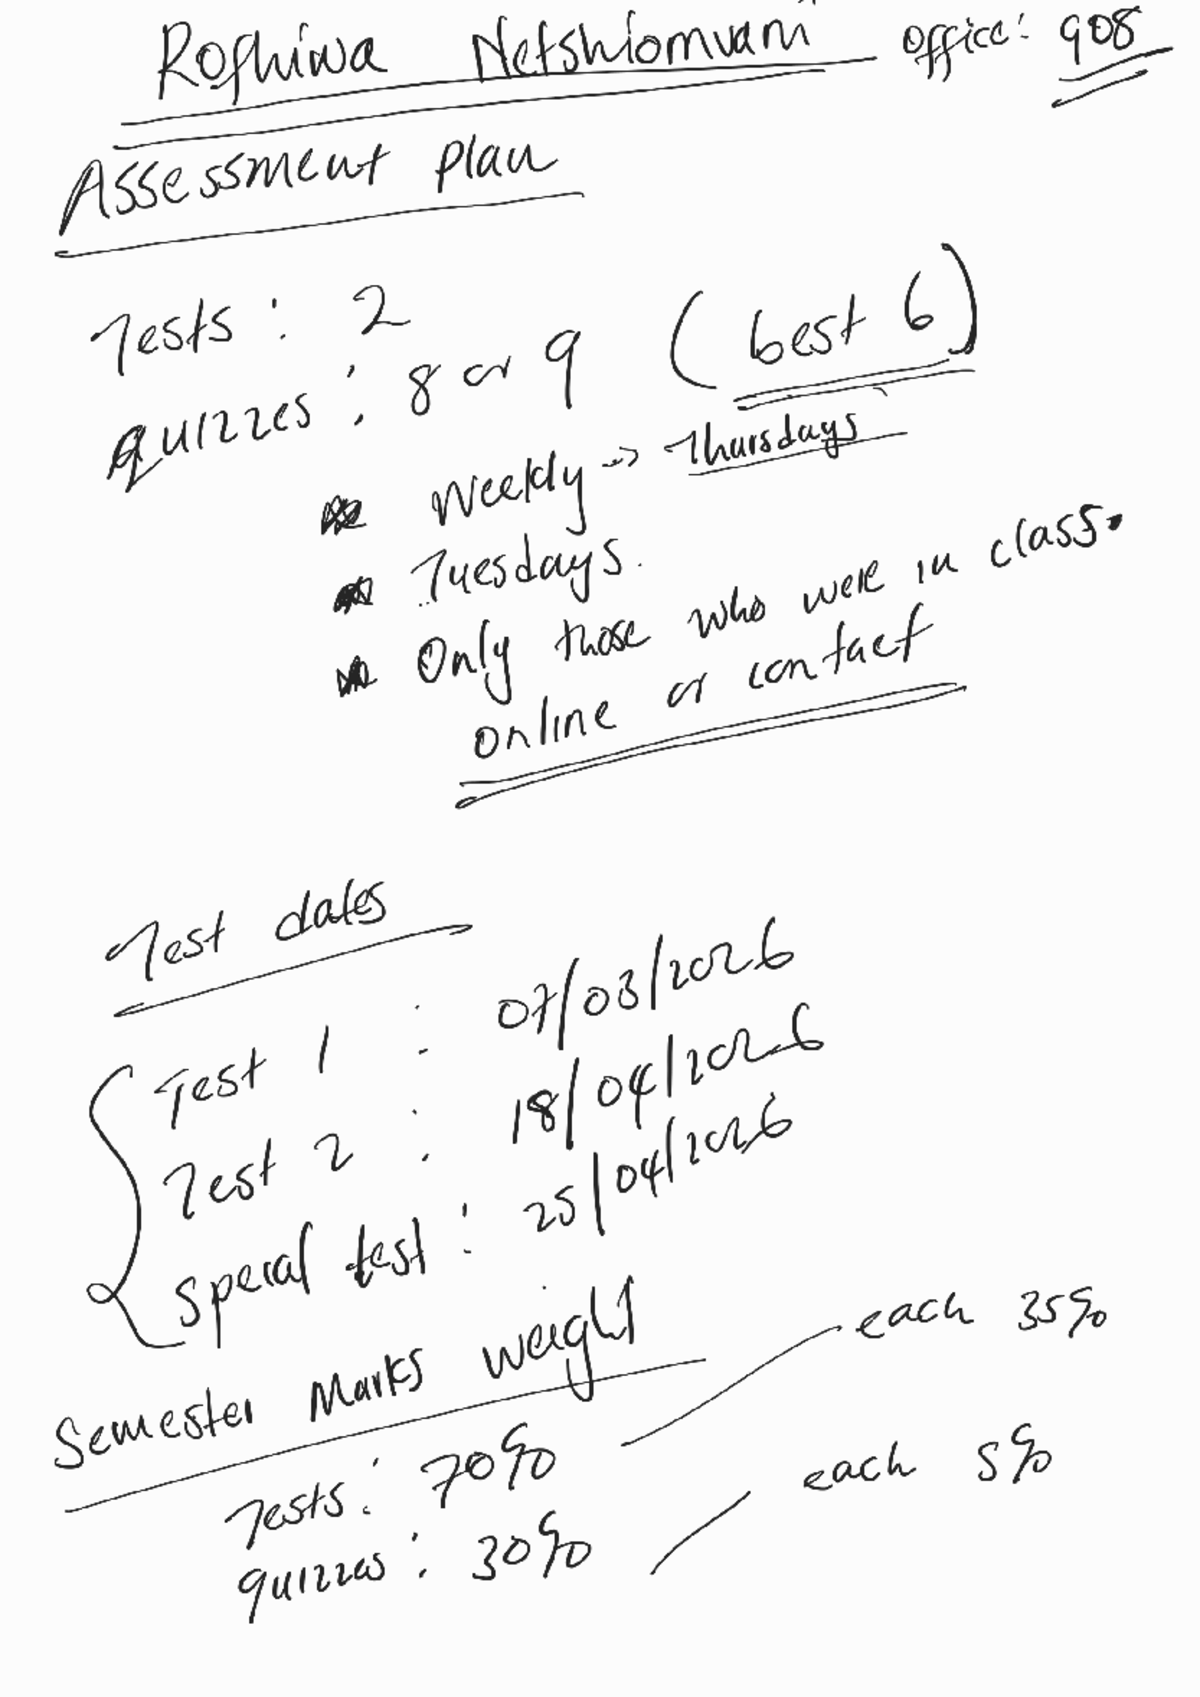 Rofhiwa Netshiomvani office: 908
Assessment plan
Tests: 2
quizzes: 8 or 9 (best 6)
Weekly -> Thursdays
Tuesdays.
Only those who were in class.
online or contact
Test dates
Test 1 : 07/03/2026
Test 2 : 18/04/2026
Special test: 25/04/2026
Semester Marks weight
Tests: 70% each 35%
quizzes: 30% each 5%